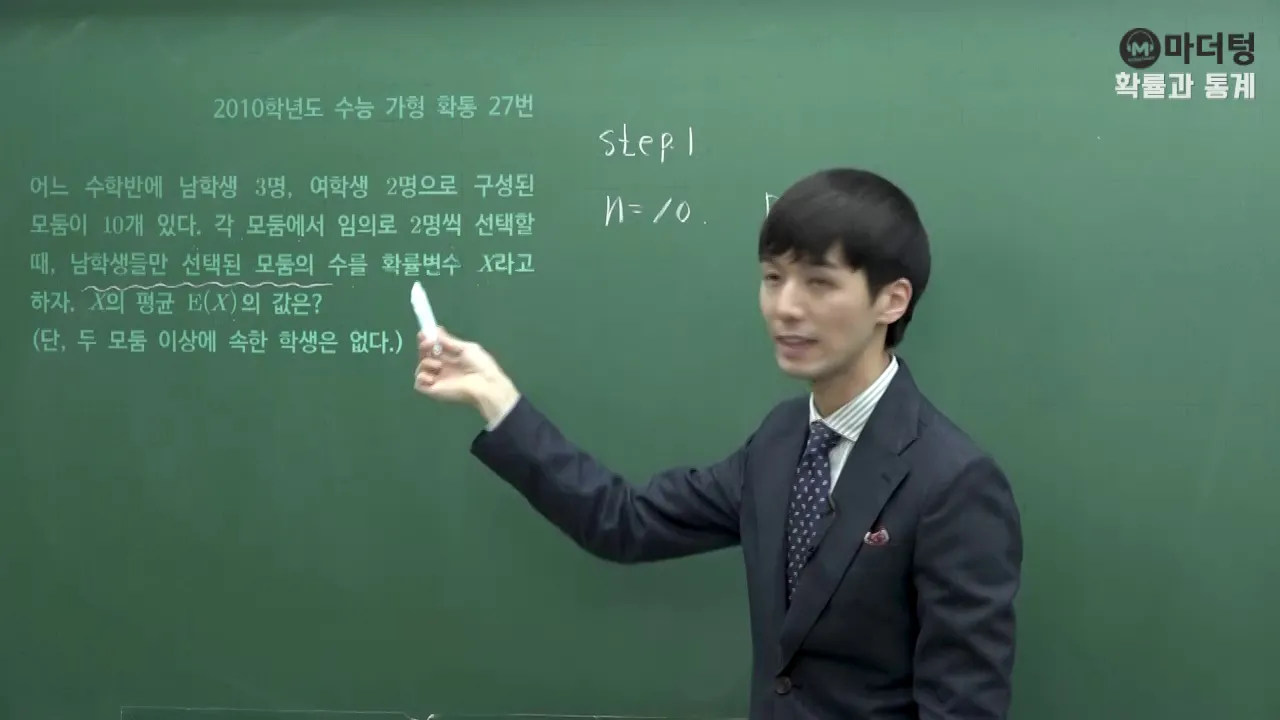 마더텅
확률과 통계
2010학년도 수능 가형 확통 27번
어느 수학반에 남학생 3명, 여학생 2명으로 구성된
모둠이 10개 있다. 각 모둠에서 임의로 2명씩 선택할
때, 남학생들만 선택된 모둠의 수를 확률변수 X라고
하자. X의 평균 E(X)의 값은?
(단, 두 모둠 이상에 속한 학생은 없다.)
step. 1
n=10.